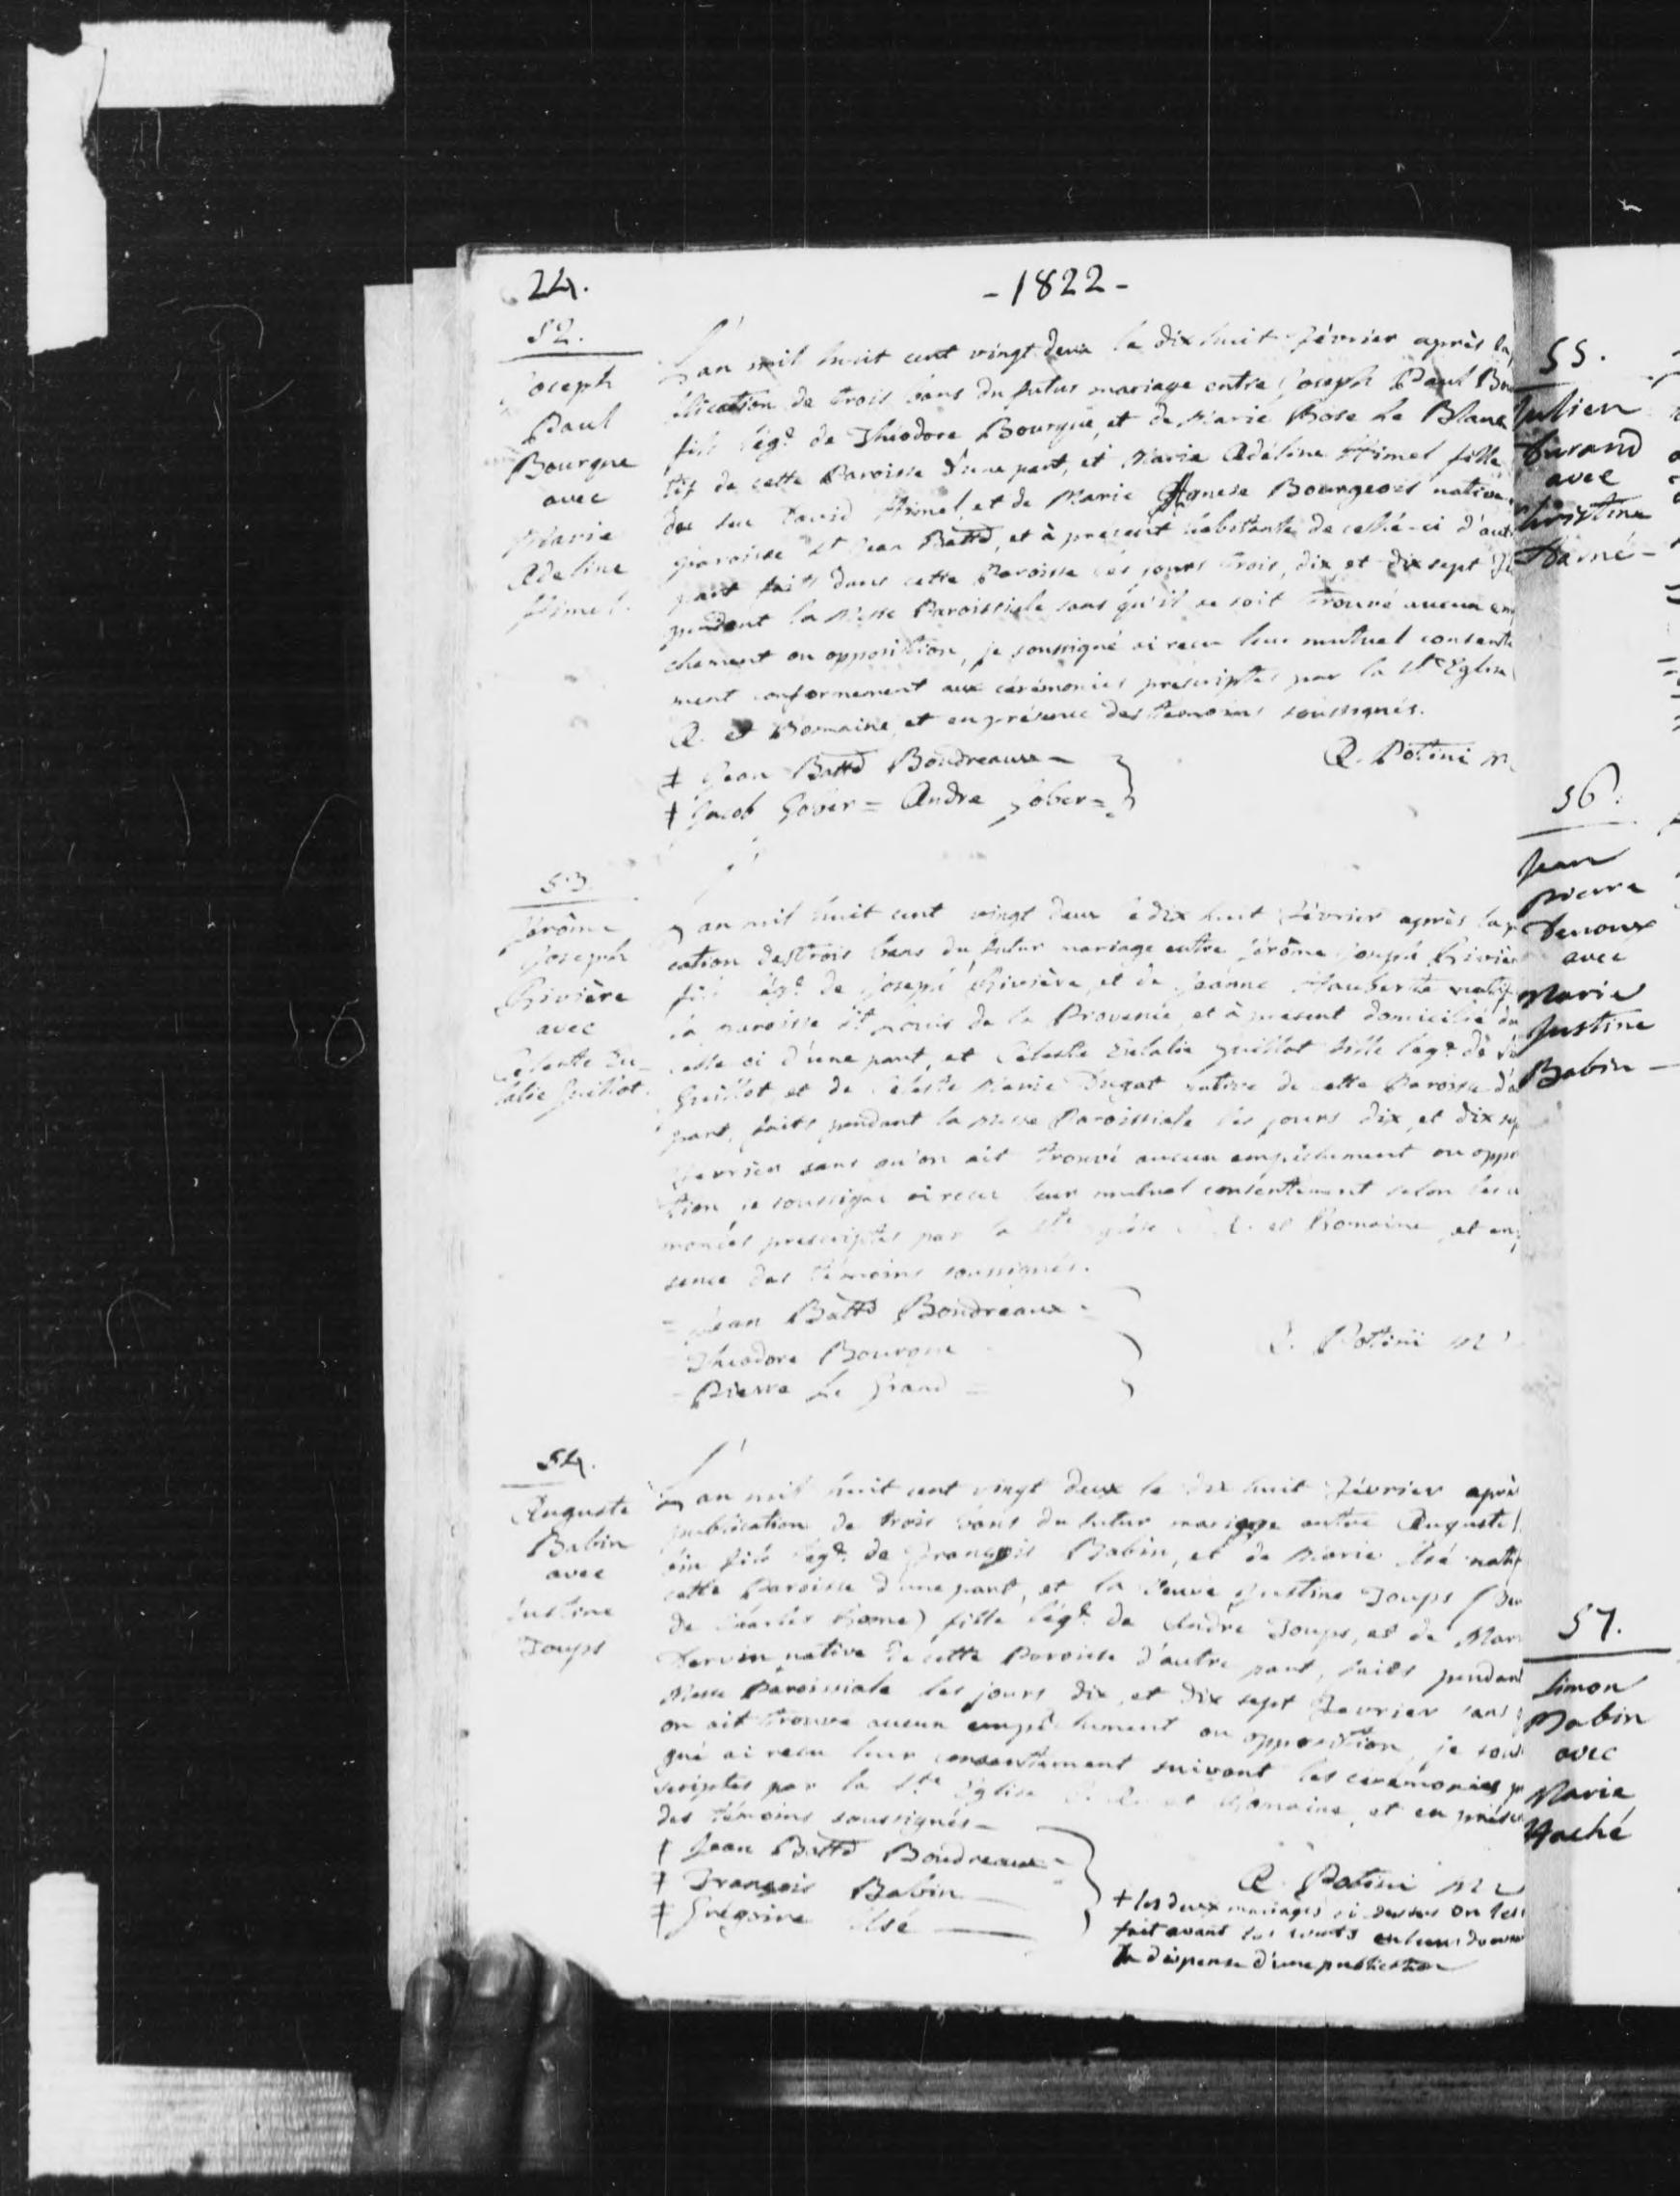 24.
-1822-
52.
Joseph
Paul
Bourgue
avec
Marie
Adeline
Himel.
L'an mil huit cent vingt deux le dix huit fevrier après la
blication de trois bans du futur mariage entre Joseph Paul Bou
fils lég.e de Théodore Bourgue, et de Marie Rose Le Blanc
tif de cette Paroisse d'une part, et Marie Adéline Himel fille
de feu David Himel et de Marie Agnese Bourgeois native
paroisse St Jean Battê, et à present habitante de celle-ci d'autr
part faits dans cette Paroisse les jours trois, dix et dix sept
pendant la Messe Paroissiale sans qu'il se soit trouvé aucun em
chement ou opposition, je soussigné ai recu leur mutuel consente
ment conformement aux cérémonies prescriptes par la Ste Eglise
A. et Romaine, et en présence des témoins soussignés.
‡ Jean Battê Boudreaux -
‡ Jacob = Andre
A. Potini
53.
Jérôme
Joseph
Rivière
avec
Celeste Eu-
lalie Guillot.
L'an mil huit cent vingt deux le dix huit février après la p
cation des trois bans du futur mariage entre Jérôme Joseph Rivièr
fils lég.e de Joseph Rivière, et de Jeanne natif
la paroisse St de la Provence, et à present domicilié du
celle ci d'une part, et Céleste Eulalie Guillot fille leg.e de
Guillot, et de Céleste Marie Dugat native de cette Paroisse d'a
part, faits pendant la Messe Paroissiale les jours dix, et dix sep
fevrier sans qu'on ait trouvé aucun empêchement ou oppo
tion je soussigné ai recu leur mutuel consentement selon les c
monies prescriptes par la Ste Eglise et Romaine, et en p
sence des témoins soussignés.
= Jean Battê Boudreaux =
- Théodore Bourgue
- Pierre Le Grand =
A. Potini
54.
Auguste
Babin
avec
Justine
Toups
L'an mil huit cent vingt deux le dix huit février aprè
publication de trois bans du futur mariage entre Auguste
bin fils lég.e de François Babin, et de Marie Usé natif
cette Paroisse d'une part, et la Veuve Justine Toups
de Charles Rome) fille lég.e de André Toups, et de Mar
native de cette Paroisse d'autre part, faits pendant
Messe Paroissiale les jours dix, et dix sept fevrier sans
on ait trouvé aucun empêchement ou opposition, je sous
gné ai recu leur consentement suivant les cérémonies p
scriptes par la Ste Eglise et Romaine, et en prése
des témoins soussignés -
‡ Jean Battê Boudreaux =
‡ François Babin
‡ Grégoire Usé
A. Potini
+ les deux mariages ci dessus on les
fait avant les
la dispense d'une publication
55.
Julien
Durand
avec
Christine
56.
Jean
pierre
avec
Marie
Justine
Babin -
57.
Simon
Babin
avec
Marie
Haché